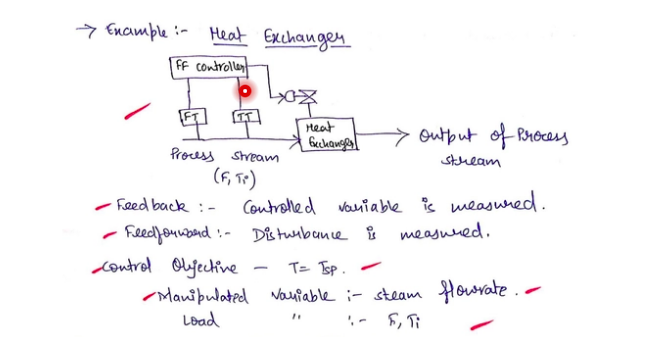 → Example :- Heat Exchanger
FF controller
FT
TT
Heat
Exchanger
Output of Process
stream
Process stream
(F, Ti)
Feedback :- Controlled variable is measured.
Feedforward :- Disturbance is measured.
Control Objective - T = Tsp.
Manipulated variable :- steam flowrate.
Load " :- F, Ti